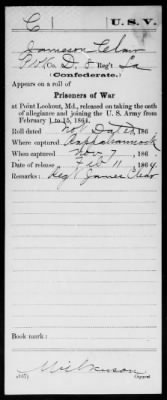 C U.S.V.
Jameson Char
Pvt Co. D. 8 Reg't La
(Confederate.)
Appears on a roll of
Prisoners of War
at Point Lookout, Md., released on taking the oath
of allegiance and joining the U. S. Army from
February 1 to 15, 1864.
Roll dated Not Dated, 186
Where captured Rappahannock
When captured Nov 7, 186
Date of release Feb 11, 1864.
Remarks: James Char
Book mark:
Wilkinson
Copyist.